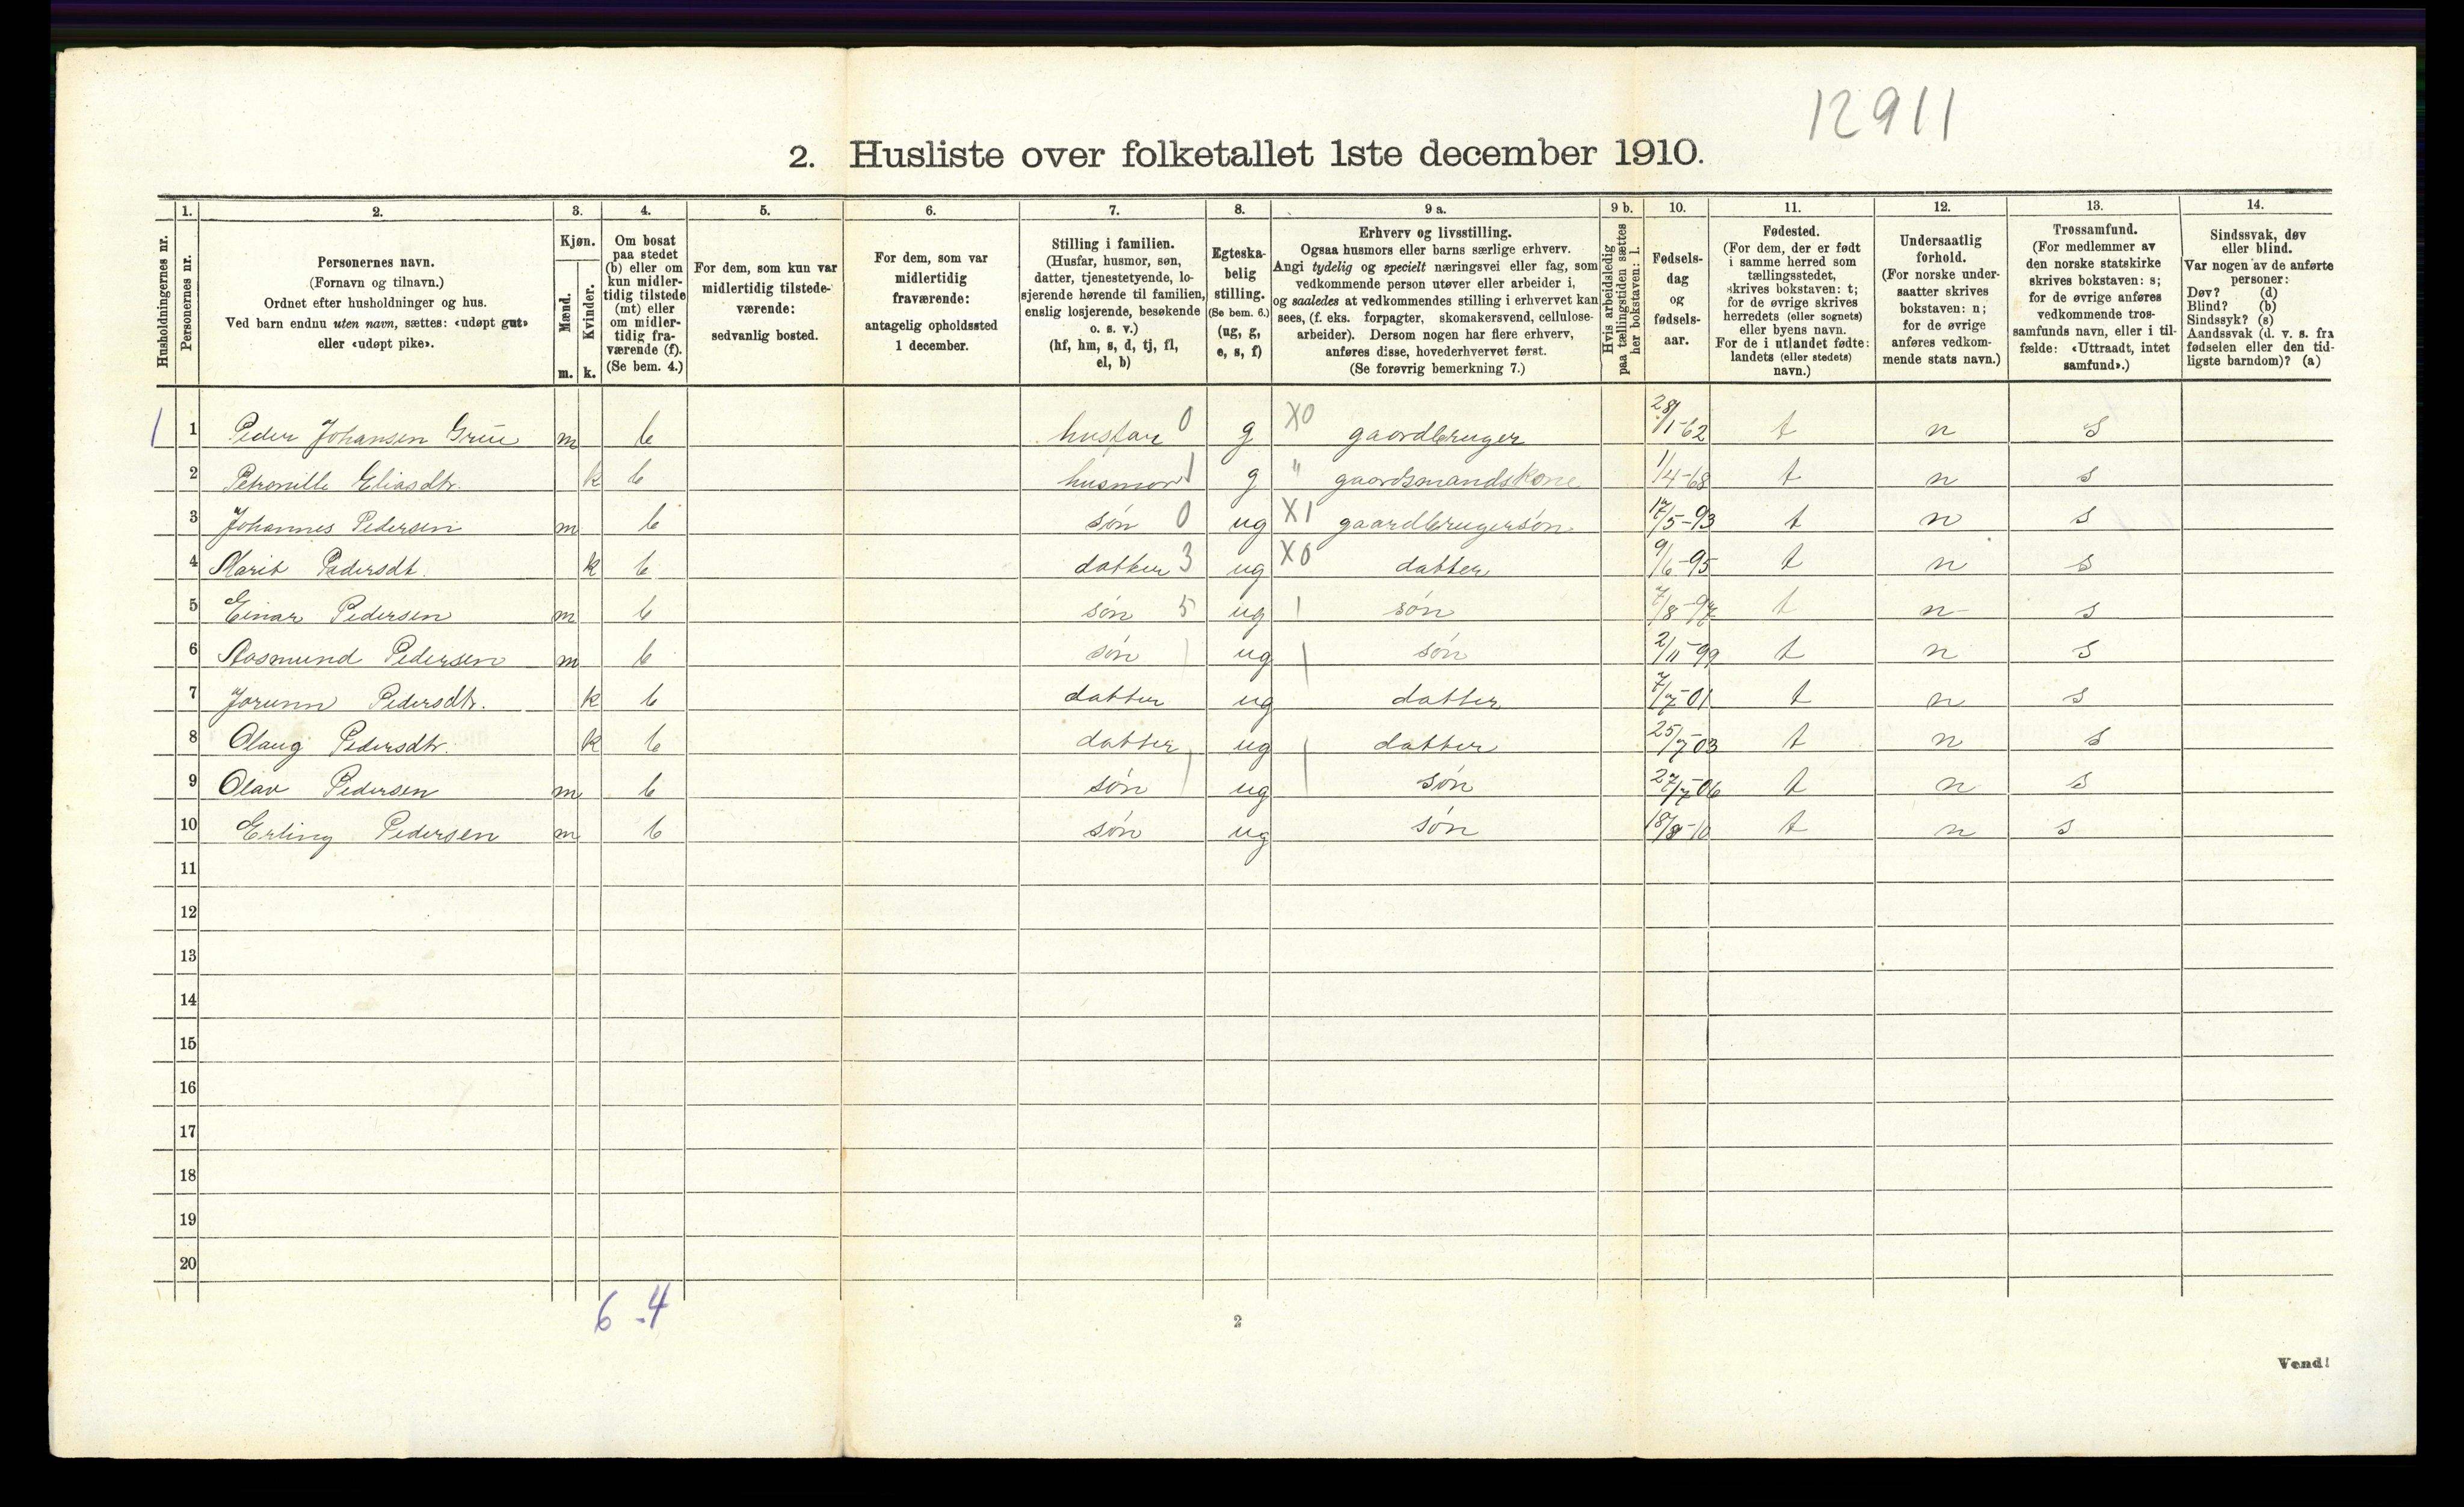 12911
2. Husliste over folketallet 1ste december 1910.
1. 2. 3. 4. 5. 6. 7. 8. 9 a. 9 b. 10. 11. 12. 13. 14.
Husholdningernes nr.
Personernes nr.
Personernes navn.
(Fornavn og tilnavn.)
Ordnet efter husholdninger og hus.
Ved barn endnu uten navn, sættes: «udøpt gut»
eller «udøpt pike».
Kjøn.
Mænd.
Kvinder.
m. k.
Om bosat
paa stedet
(b) eller om
kun midler-
tidig tilstede
(mt) eller
om midler-
tidig fra-
værende (f).
(Se bem. 4.)
For dem, som kun var
midlertidig tilstede-
værende:
sedvanlig bosted.
For dem, som var
midlertidig
fraværende:
antagelig opholdssted
1 december.
Stilling i familien.
(Husfar, husmor, søn,
datter, tjenestetyende, lo-
sjerende hørende til familien,
enslig losjerende, besøkende
o. s. v.)
(hf, hm, s, d, tj, fl,
el, b)
Egteska-
belig
stilling.
(Se bem. 6.)
(ug, g,
e, s, f)
Erhverv og livsstilling.
Ogsaa husmors eller barns særlige erhverv.
Angi tydelig og specielt næringsvei eller fag, som
vedkommende person utøver eller arbeider i,
og saaledes at vedkommendes stilling i erhvervet kan
sees, (f. eks. forpagter, skomakersvend, cellulose-
arbeider). Dersom nogen har flere erhverv,
anføres disse, hovederhvervet først.
(Se forøvrig bemerkning 7.)
Hvis arbeidsledig
paa tællingstiden sættes
her bokstaven: l.
Fødsels-
dag
og
fødsels-
aar.
Fødested.
(For dem, der er født
i samme herred som
tællingsstedet,
skrives bokstaven: t;
for de øvrige skrives
herredets (eller sognets)
eller byens navn.
For de i utlandet fødte:
landets (eller stedets)
navn.)
Undersaatlig
forhold.
(For norske under-
saatter skrives
bokstaven: n;
for de øvrige
anføres vedkom-
mende stats navn.)
Trossamfund.
(For medlemmer av
den norske statskirke
skrives bokstaven: s;
for de øvrige anføres
vedkommende tros-
samfunds navn, eller i til-
fælde: «Uttraadt, intet
samfund».)
Sindssvak, døv
eller blind.
Var nogen av de anførte
personer:
Døv? (d)
Blind? (b)
Sindssyk? (s)
Aandssvak (d. v. s. fra
fødselen eller den tid-
ligste barndom)? (a)
1 1 Peder Johansen Grue m b husfar 0 g X0 gaardbruger 28/1-62 t n s
2 Petronille Eliasdtr. k b husmor 1 g " gaardsmandskone 1/4-68 t n s
3 Johannes Pedersen m b søn 0 ug X1 gaardbrugersøn 17/5-93 t n s
4 Marit Pedersdt. k b datter 3 ug X0 datter 9/6-95 t n s
5 Einar Pedersen m b søn 5 ug 1 søn 7/8-97 t n s
6 Aasmund Pedersen m b søn ug søn 2/11-99 t n s
7 Jorunn Pedersdtr. k b datter ug datter 7/7-01 t n s
8 Olaug Pedersdtr. k b datter ug datter 25/7-03 t n s
9 Olav Pedersen m b søn ug søn 27/7-06 t n s
10 Erling Pedersen m b søn ug søn 18/8-10 t n s
11
12
13
14
15
16
17
18
19
20
6 - 4
2
Vend!